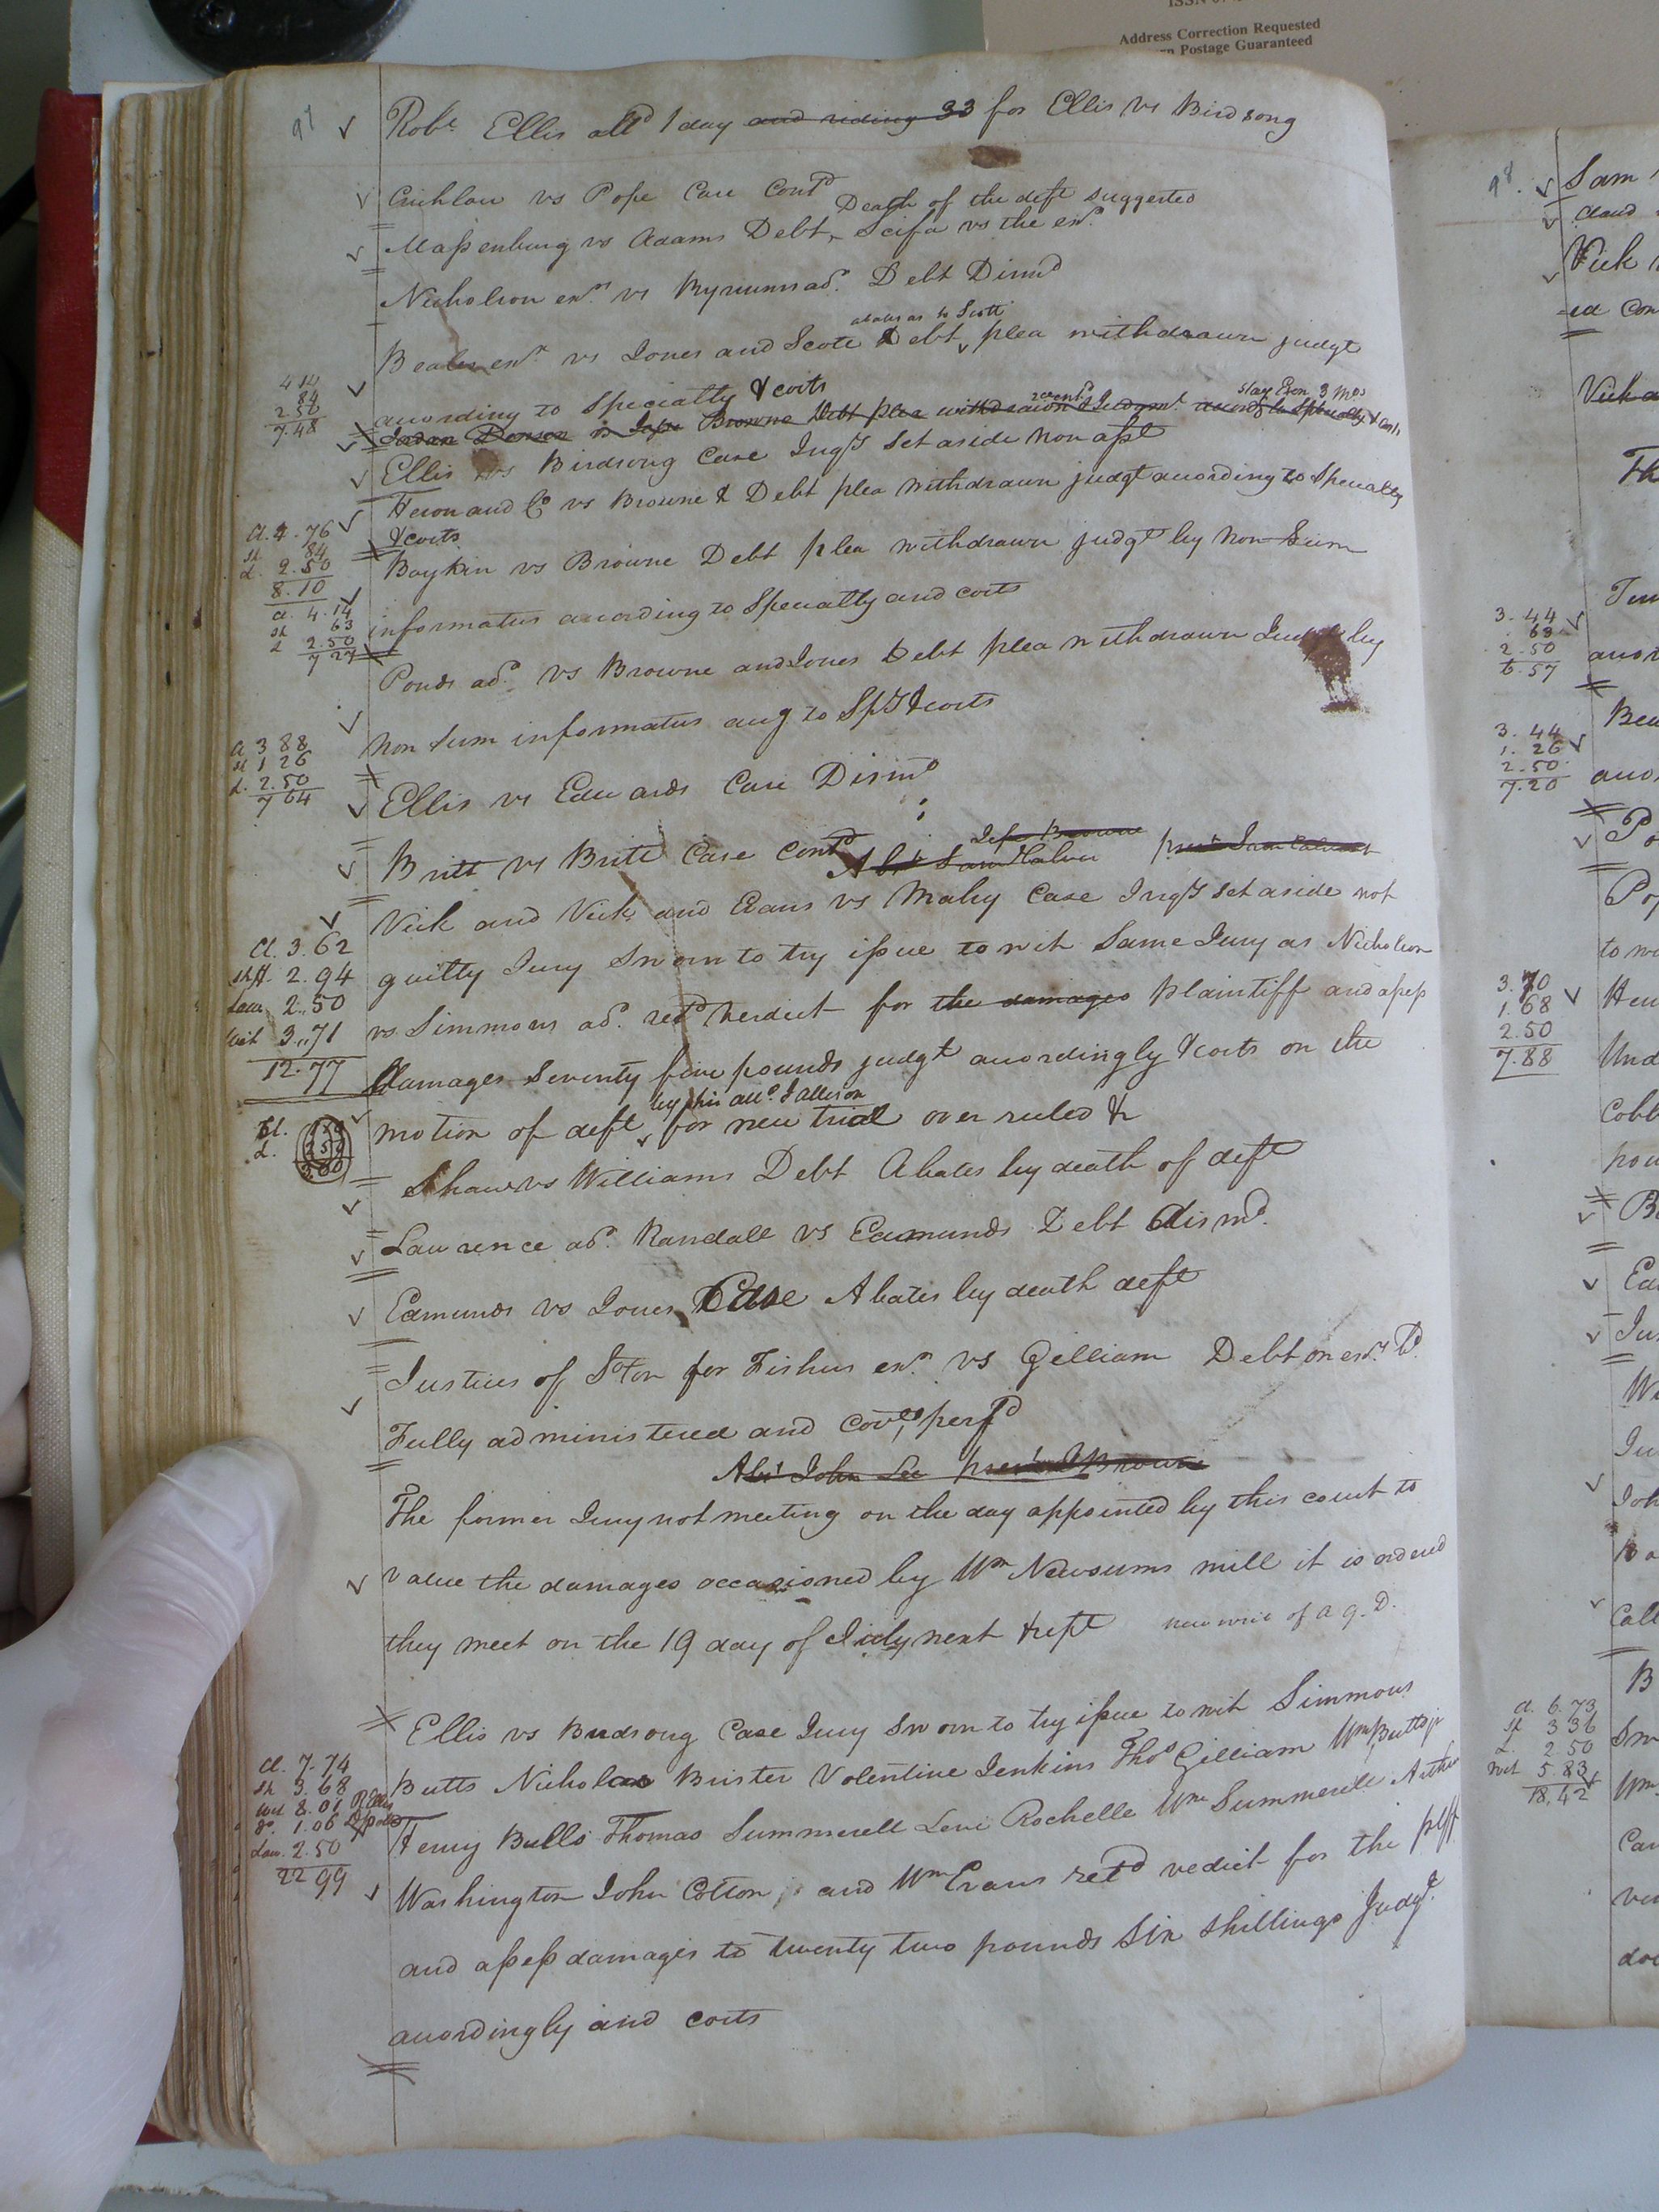 Address Correction Requested
Postage Guaranteed
97
Robt Ellis attd 1 day and riding 33 for Ellis vs Birdsong
Crichlow vs Pope Case Contd
Death of the deft suggested
Maßenburg vs Adams Debt, Scifa vs the exr.
Nicholson exr vs Bynums ad. Debt Dismd
abates as to Scott
Beales exr vs Jones and Scott Debt plea withdrawn judgt
4 14
84
2 50
7.48
according to Specialty & costs
Jordan Denson vs Jesse Browne Debt plea withdrawn & Judgmt. accordg to Specialty & Costs
stay Exon. 3 Mos
Ellis vs Birdsong Case Jugt Set aside non aßt
Heron and Co vs Browne & Debt plea withdrawn judgt according to Specialty
& costs
Cl. 4.76
Sh 84
L. 2.50
8.10
Boykin vs Browne Debt plea withdrawn judgt by Non Sum
informatus according to Specialty and costs
Cl 4.14
Sh 63
L 2.50
7 27
Ponds ad. vs Browne and Jones Debt plea withdrawn Judgt by
non sum informatus accg to SpT & costs
Cl 3 88
Sh 1 26
L. 2.50
7 64
Ellis vs Edwards Case Dismd
Britt vs Britt Case Contd
Abt Sam Calvert
Jesse Browne
prest Sam Calvert
Vick and Vick and Evans vs Mabry Case Jugt set aside not
guilty Jury Sworn to try ißue to wit Same Jury as Nicholson
vs Simmons ad. retd Verdict for the damages plaintiff and aßeß
Damages Seventy five pounds judgt accordingly & costs on the
Cl. 3.62
Shff. 2.94
Law. 2.50
Wit 3.71
12.77
by his atto. J Allison
motion of deft for new trial over ruled &
Shaw vs Williams Debt Abates by death of deft
Lawrence ad. Randall vs Edmunds Debt dismd.
Edmunds vs Jones Case Abates by death deft
Justices of Soton for Fishers exr. vs Gilliam Debt on exrs bd.
Fully administered and Covts perfd
Abt John Lee prest J Browne
The former Jury not meeting on the day appointed by this court to
value the damages occasioned by Wm Newsums mill it is ordered
they meet on the 19 day of July next & rept new writ of a q. D.
Ellis vs Birdsong Case Jury Sworn to try ißue to wit Simmons
Butts Nicholas Brister Volentine Jenkins Thos Gilliam Wm Butts jr
Henry Bulls Thomas Summerell Levi Rochelle Wm Summerell Arthur
Washington John Cotton, and Wm Evans retd vedict for the plff
and aßeß damages to twenty two pounds Six shillings Judgt.
accordingly and costs
Cl. 7.74
Sh 3.68
Wit 8.01 R Ellis
Do. 1.06
Law. 2.50
22 99
98.
Sam
Vick
ed Con
3.44
63
2.50
6.57
3.44
1.26
2.50
7.20
to wi
3.70
1.68
2.50
7.88
Hen
Und
Cobb
pou
Cl. 6.73
Sh 3 36
L. 2 50
Wit 5.83
18.42
Wm